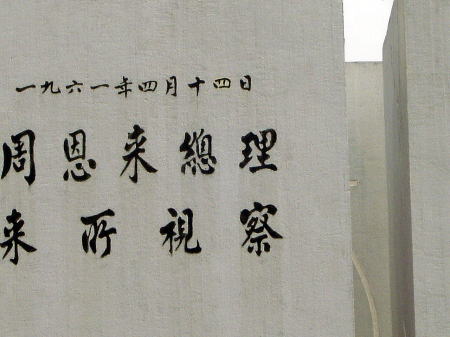 一九六一年四月十四日
周恩来總理
来所視察